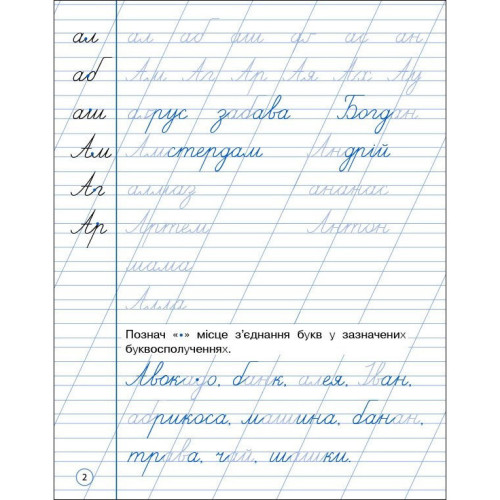 ал ал аб аш ан
аб Ам Аг Ар Ая Ах Ау
аш забава Богдан
Ам Амстердам Андрій
Аг алмаз ананас
Ар Артем Антон
мама
Алла
Познач «•» місце з'єднання букв у зазначених
буквосполученнях.
Авокадо, банк, алея, Іван,
абрикоса, машина, банан,
трава, чай, шашки.
2